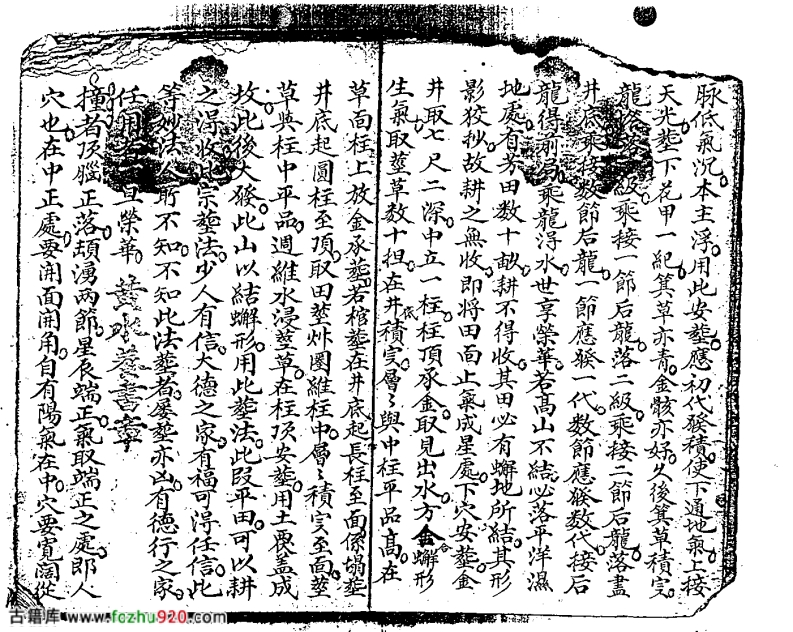 脉低氣沉本主浮用此安塟應初代發積使下通地氣上接
天光塟下花甲一紀箕草亦青金骸亦好久後箕草積定
龍落級乘接一節后龍落二級乘接二節后龍落盡
井底乘接数節后龍一節應發一代数節應發数代接后
龍得乘龍得水世享榮華若高山不結必落平洋濕
地處有芳田数十畝耕不得收其田必有蠏地所結其形
影狡抄故耕之無收即將田面上氣成星處下穴安塟金
井取七尺二深中立一柱柱頂承金取見出水方金蠏形
生氣取塟草数十担在井底積定層々與中柱平品高在
草面柱上放金承塟若棺塟在井底起長柱至面係塌塟
井底起圓柱至頂取田塟圈維柱中層々積定至面塟
草與柱中平品週維水浸塟草在柱頂安塟用土耎盖成
坟比後大發此山以結蠏形用此塟法此段平田可以耕
之得收此宗塟法少人有信大德之家有福可得任信此
等妙法人所不知不知此法塟者屡塟亦凶有德行之家
任用榮華 書章
撞者頂腦正落頏湧兩節星辰端正氣取端正之處郎人
穴也在中正處要開面開角自有陽氣在中穴要寬闊從
古籍库 www.fczhu920.com